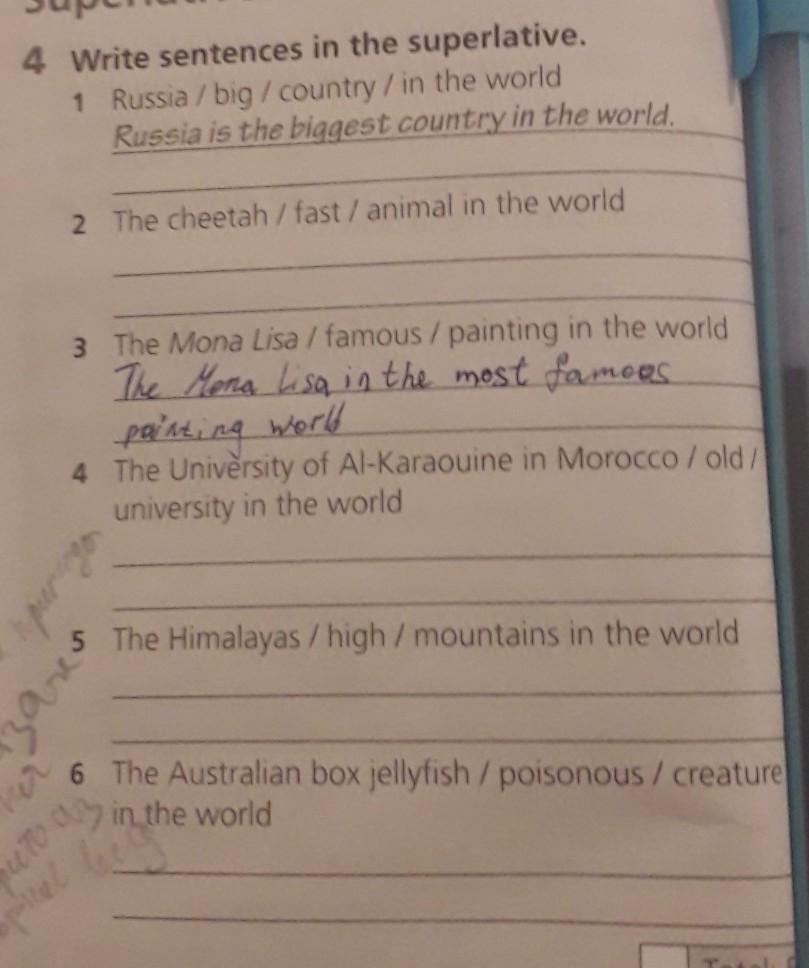 4 Write sentences in the superlative.
1 Russia / big / country / in the world
Russia is the biggest country in the world.
2 The cheetah / fast / animal in the world
3 The Mona Lisa / famous / painting in the world
The Mona Lisa in the most famoes
painting world
4 The University of Al-Karaouine in Morocco / old /
university in the world
5 The Himalayas / high / mountains in the world
6 The Australian box jellyfish / poisonous / creature
in the world